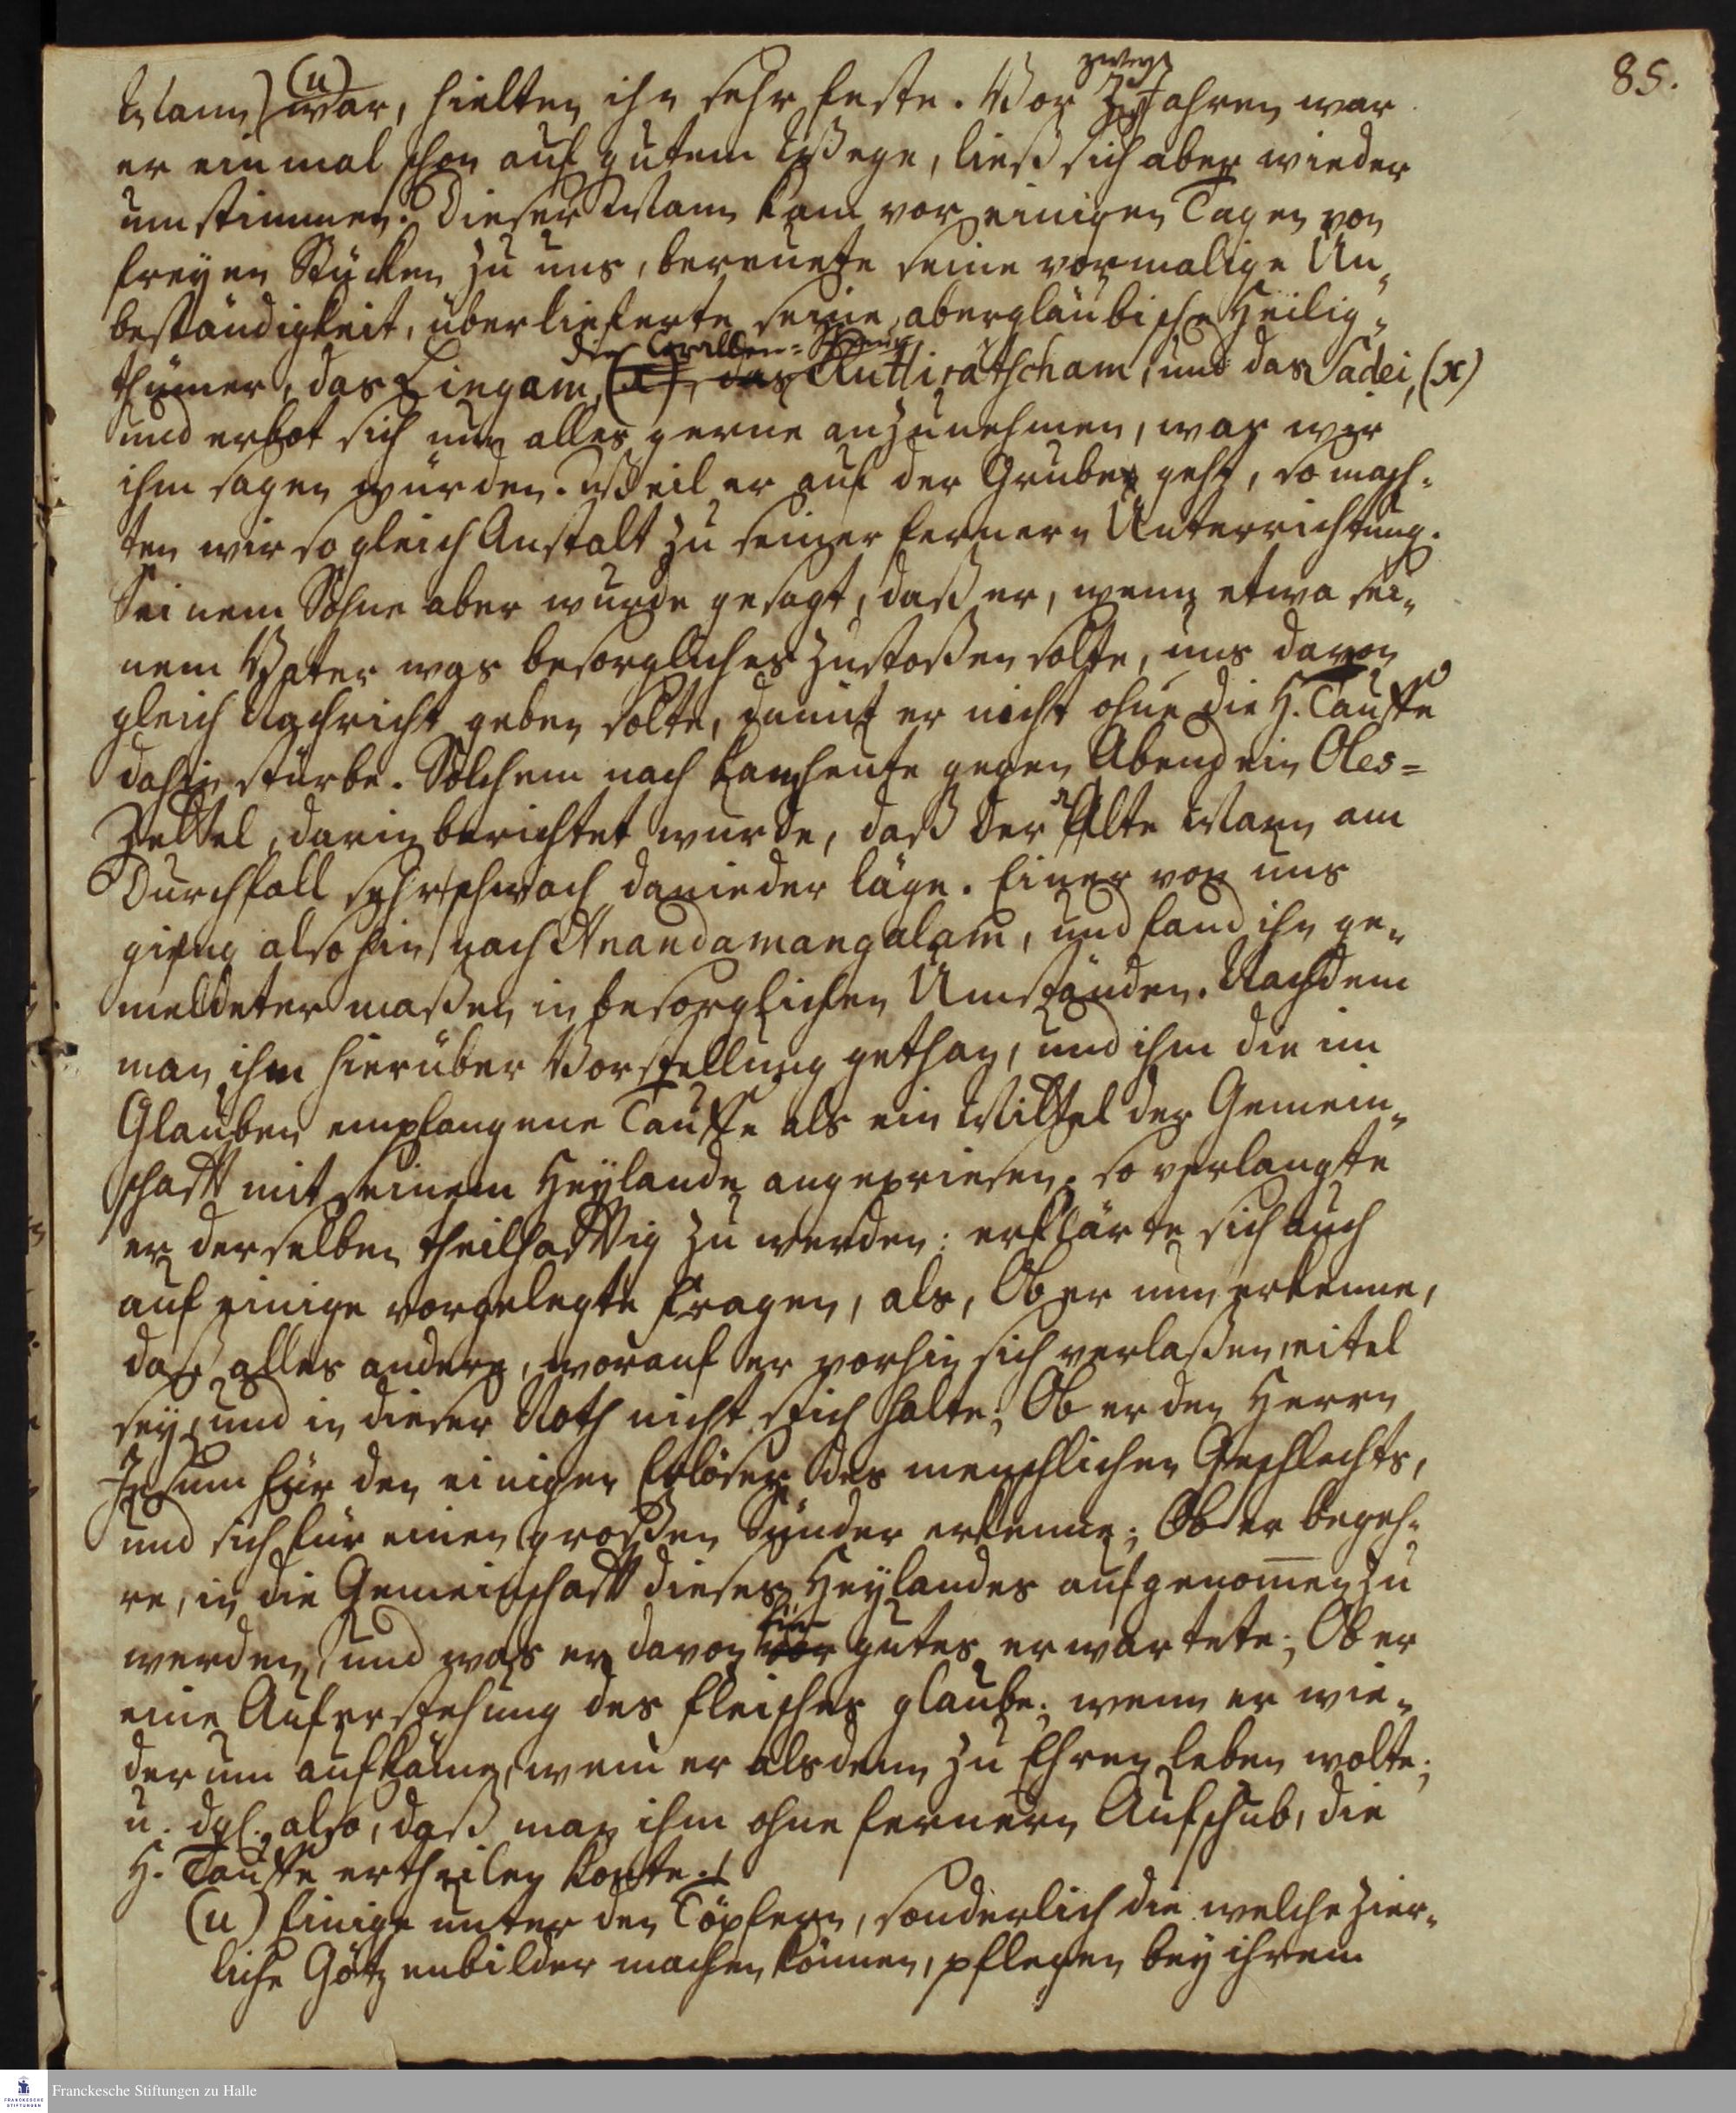 85.
Mann) (u) war, hielten ihn sehr feste. Vor zwey Jahren war
er einmal schon auf gutem Wege, ließ sich aber wieder
umstimmen. Dieser Mann kam vor einigen Tagen von
freyen Stücken zu uns, bereuete seine vormalige Un-
beständigkeit, überlieferte seine abergläubische Heilig-
thümer, das Lingam, (x), das die Corallen-Schnur Ruttirátscham, und das Sadei, (x)
und erbot sich nun alles gerne anzunehmen, was wir
ihm sagen würden. Weil er auf der Grube geht, so mach-
ten wir so gleich Anstalt zu seiner fernern Unterrichtung.
Seinem Sohne aber wurde gesagt, daß er, wenn etwa sei-
nem Vater was besorgliches zustoßen solte, uns davon
gleich Nachricht geben solte, damit er nicht ohne die H. Tauffe
dahin stürbe. Solchem nach kam heute gegen Abend ein Oles-
Zettel, darin berichtet wurde, daß der alte Mann am
Durchfall sehr schwach danieder läge. Einer von uns
gieng also hin nach Anandamangalam, und fand ihn ge-
meldeter maßen in besorglichen Umständen. Nachdem
man ihm hierüber Vorstellung gethan, und ihm die im
Glauben empfangene Tauffe als ein Mittel der Gemein-
schafft mit seinem Heylande angepriesen; so verlangte
er derselben theilhafftig zu werden: erklärte sich auch
auf einige vorgelegte Fragen, als, Ob er nun erkenne,
daß alles andere, worauf er vorhin sich verlaßen, eitel
sey, und in dieser Noth nicht stich halte; Ob er den Herrn
Jesum für den einigen Erlöser des menschlichen Geschlechts,
und sich für einen großen Sünder erkenne; Ob er begeh-
re, in die Gemeinschafft dieses Heylandes aufgenommen zu
werden, und was er davon vor für gutes erwartete; Ob er
eine Auferstehung des Fleisches glaube; wenn er wie-
derum aufkäme, wem er alsdenn zu Ehren leben wolte;
u. dgl. also, daß man ihm ohne fernern Aufschub, die
H. Tauffe ertheilen konte.
(u) Einige unter den Töpfern, sonderlich die welche zier-
liche Götzenbilder machen können, pflegen bey ihrem
Franckesche Stiftungen zu Halle